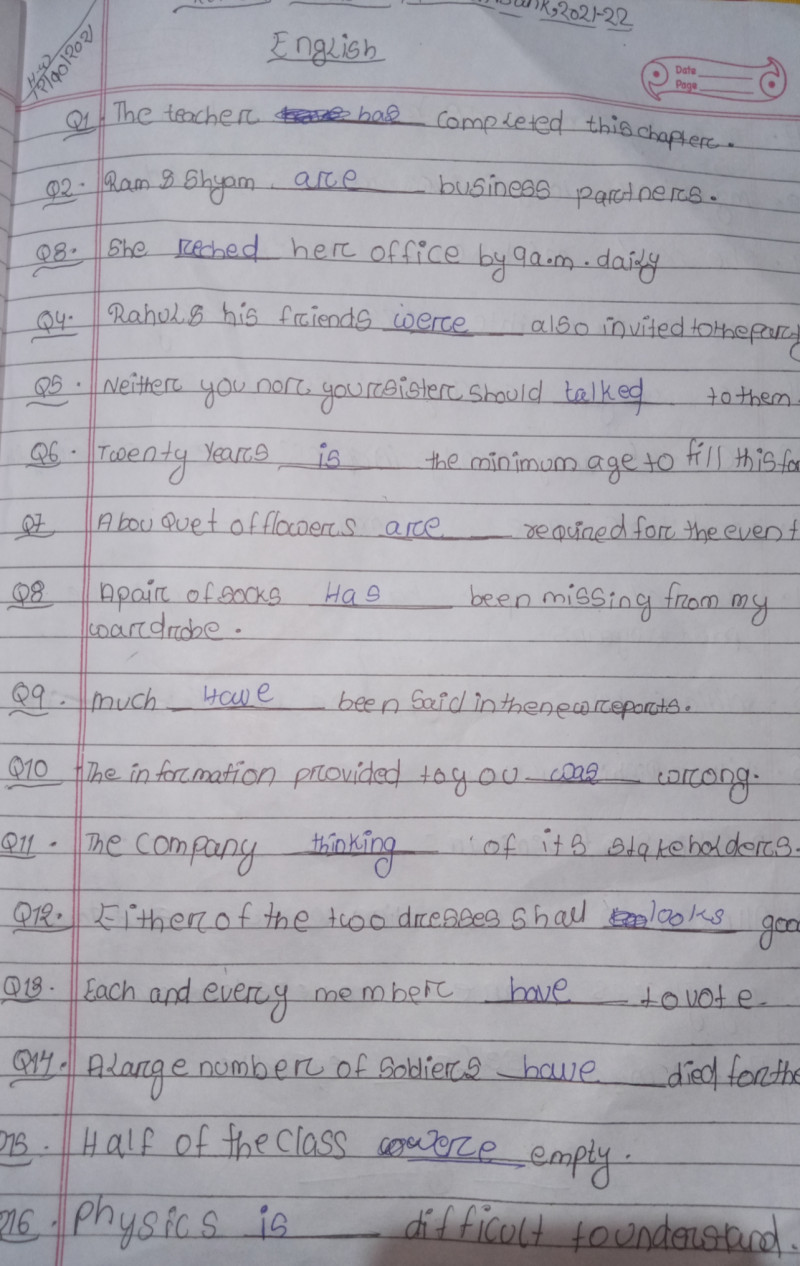 Bank, 2021-22
English
Date
Page
Q1. The teacher has completed this chapter.
Q2. Ram & Shyam are business partners.
Q3. She reched her office by 9 a.m. daily
Q4. Rahul & his friends were also invited to the party
Q5. Neither you nor your sister should talked to them
Q6. Twenty Years is the minimum age to fill this for
Q7 A bouquet of flowers are required for the event
Q8 A pair of socks Has been missing from my
wardrobe.
Q9. much Have been said in the new reports.
Q10 The information provided to you was wrong.
Q11. The company thinking of its stakeholders.
Q12. Either of the two dresses shall looks goo
Q13. Each and every member have to vote.
Q14. A large number of Soldiers have died for the
Q15. Half of the class were empty.
Q16. Physics is difficult to understand.